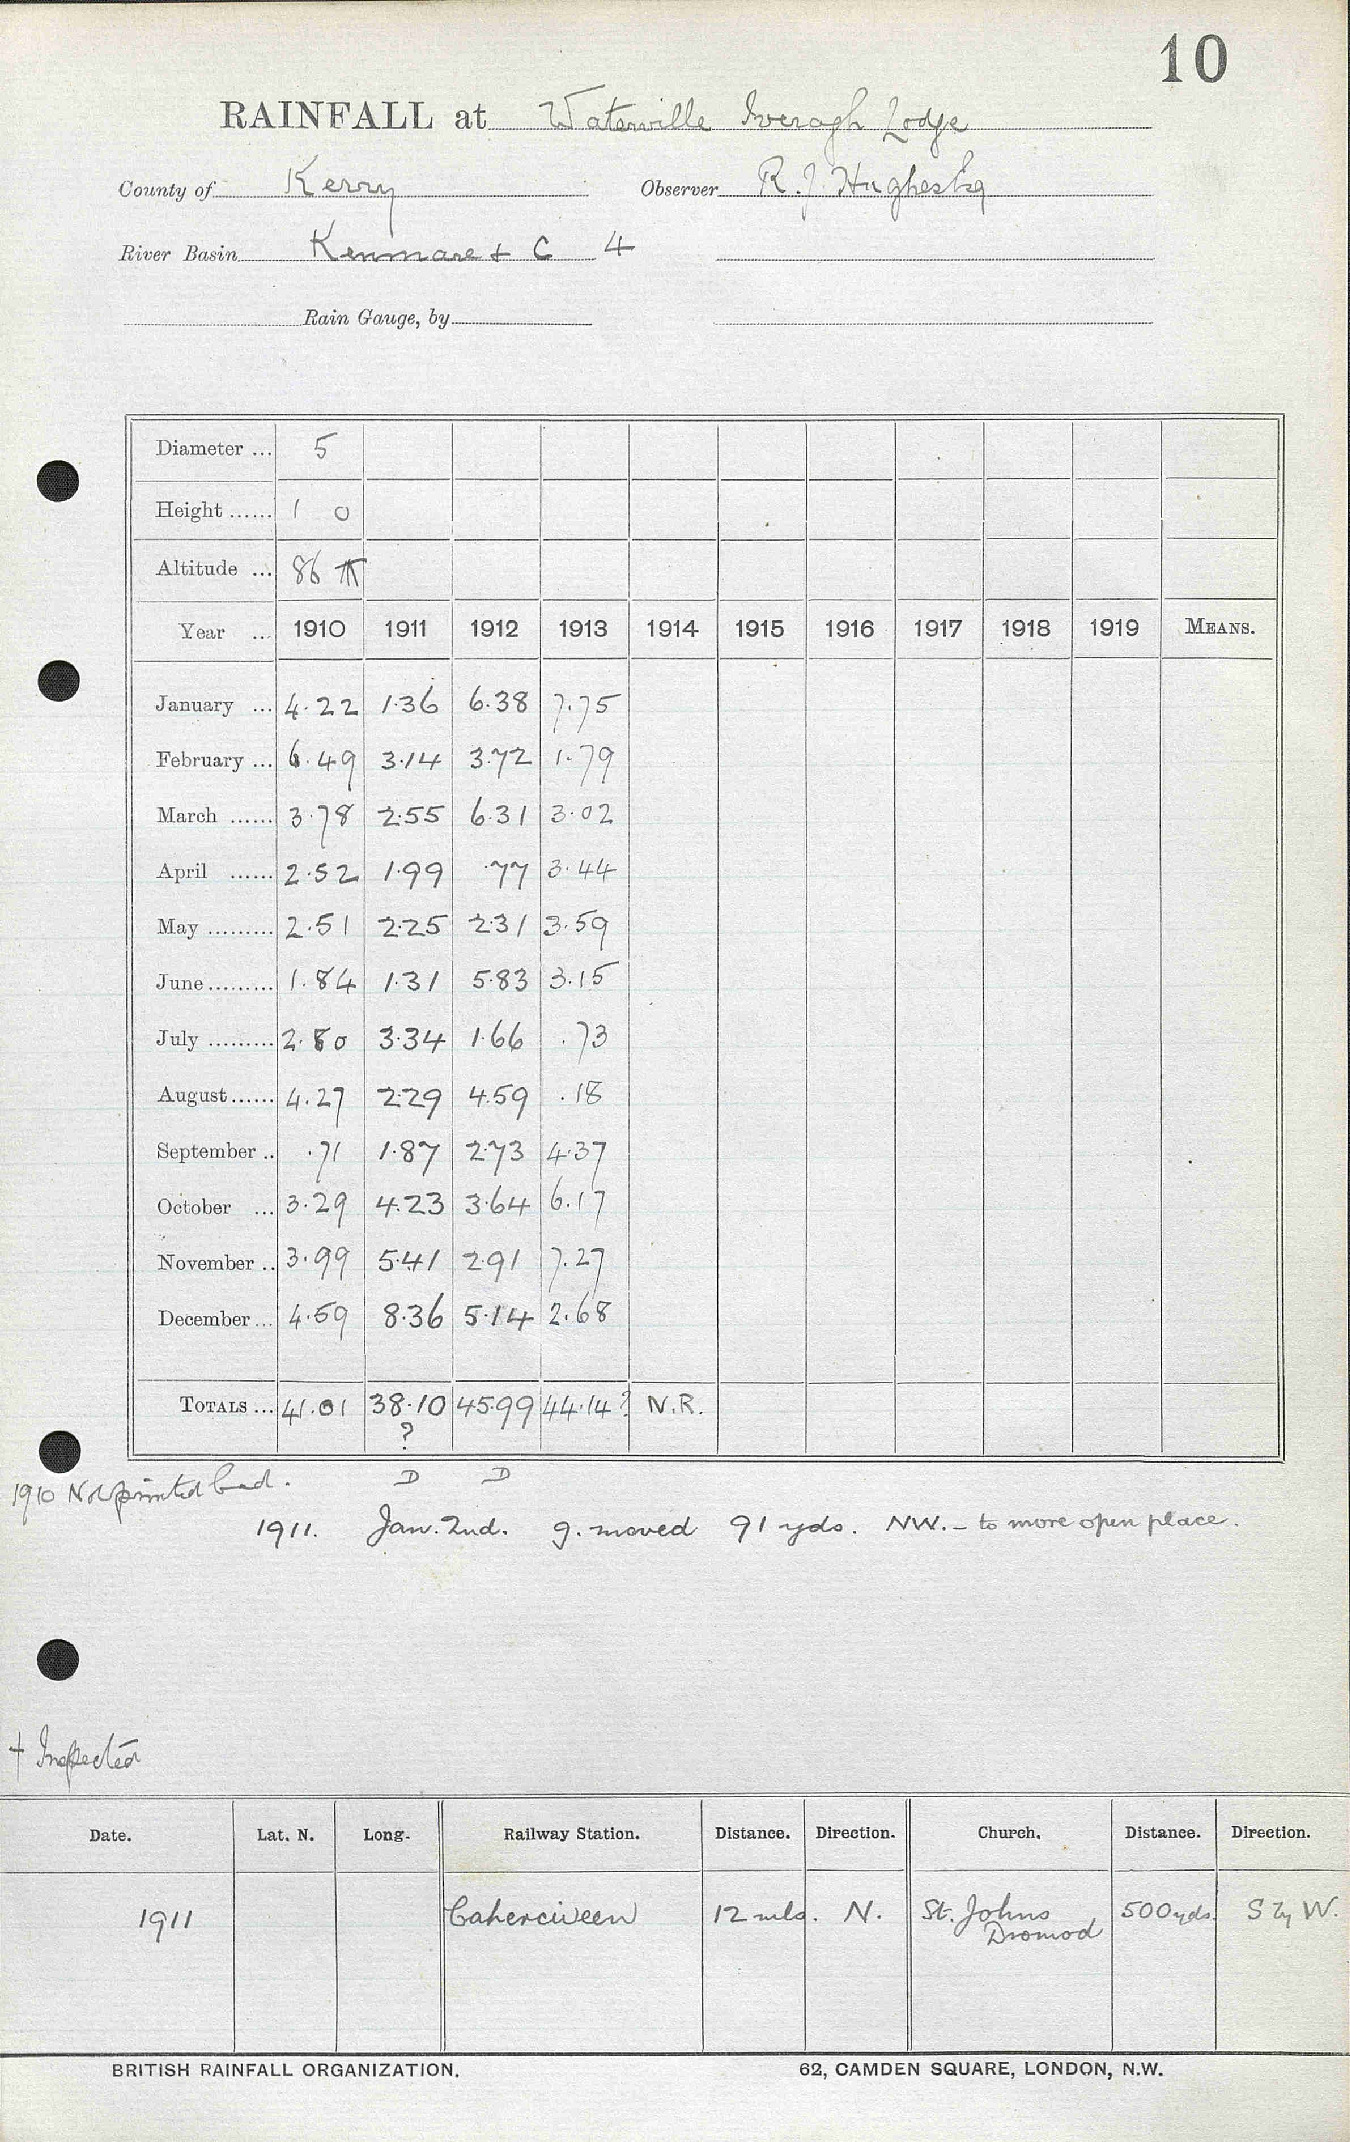 10
RAINFALL at Waterville Iveragh Lodge
County of Kerry Observer R. J. Hughes Esq
River Basin Kenmare + C 4
Rain Gauge, by
Diameter ... 5
Height ...... 1 0
Altitude ... 86
Year ... 1910 1911 1912 1913 1914 1915 1916 1917 1918 1919 MEANS.
January ... 4.22 1.36 6.38 7.75
February ... 6.49 3.14 3.72 1.79
March ...... 3.78 2.55 6.31 3.02
April ...... 2.52 1.99 .77 3.44
May ......... 2.51 2.25 2.31 3.59
June ......... 1.84 1.31 5.83 3.15
July ......... 2.80 3.34 1.66 .73
August ...... 4.27 2.29 4.59 .18
September .. .71 1.87 2.73 4.37
October ... 3.29 4.23 3.64 6.17
November .. 3.99 5.41 2.91 7.27
December ... 4.59 8.36 5.14 2.68
TOTALS ... 41.01 38.10 45.99 44.14? N.R.
?
D D
1910 Not printed bad.
1911. Jan. 2nd. g. moved 91 yds. NW. - to more open place.
† Inspected
Date. Lat. N. Long. Railway Station. Distance. Direction. Church. Distance. Direction.
1911 Caherciveen 12 mls. N. St. Johns 500 yds. S by W.
Dromod
BRITISH RAINFALL ORGANIZATION. 62, CAMDEN SQUARE, LONDON, N.W.